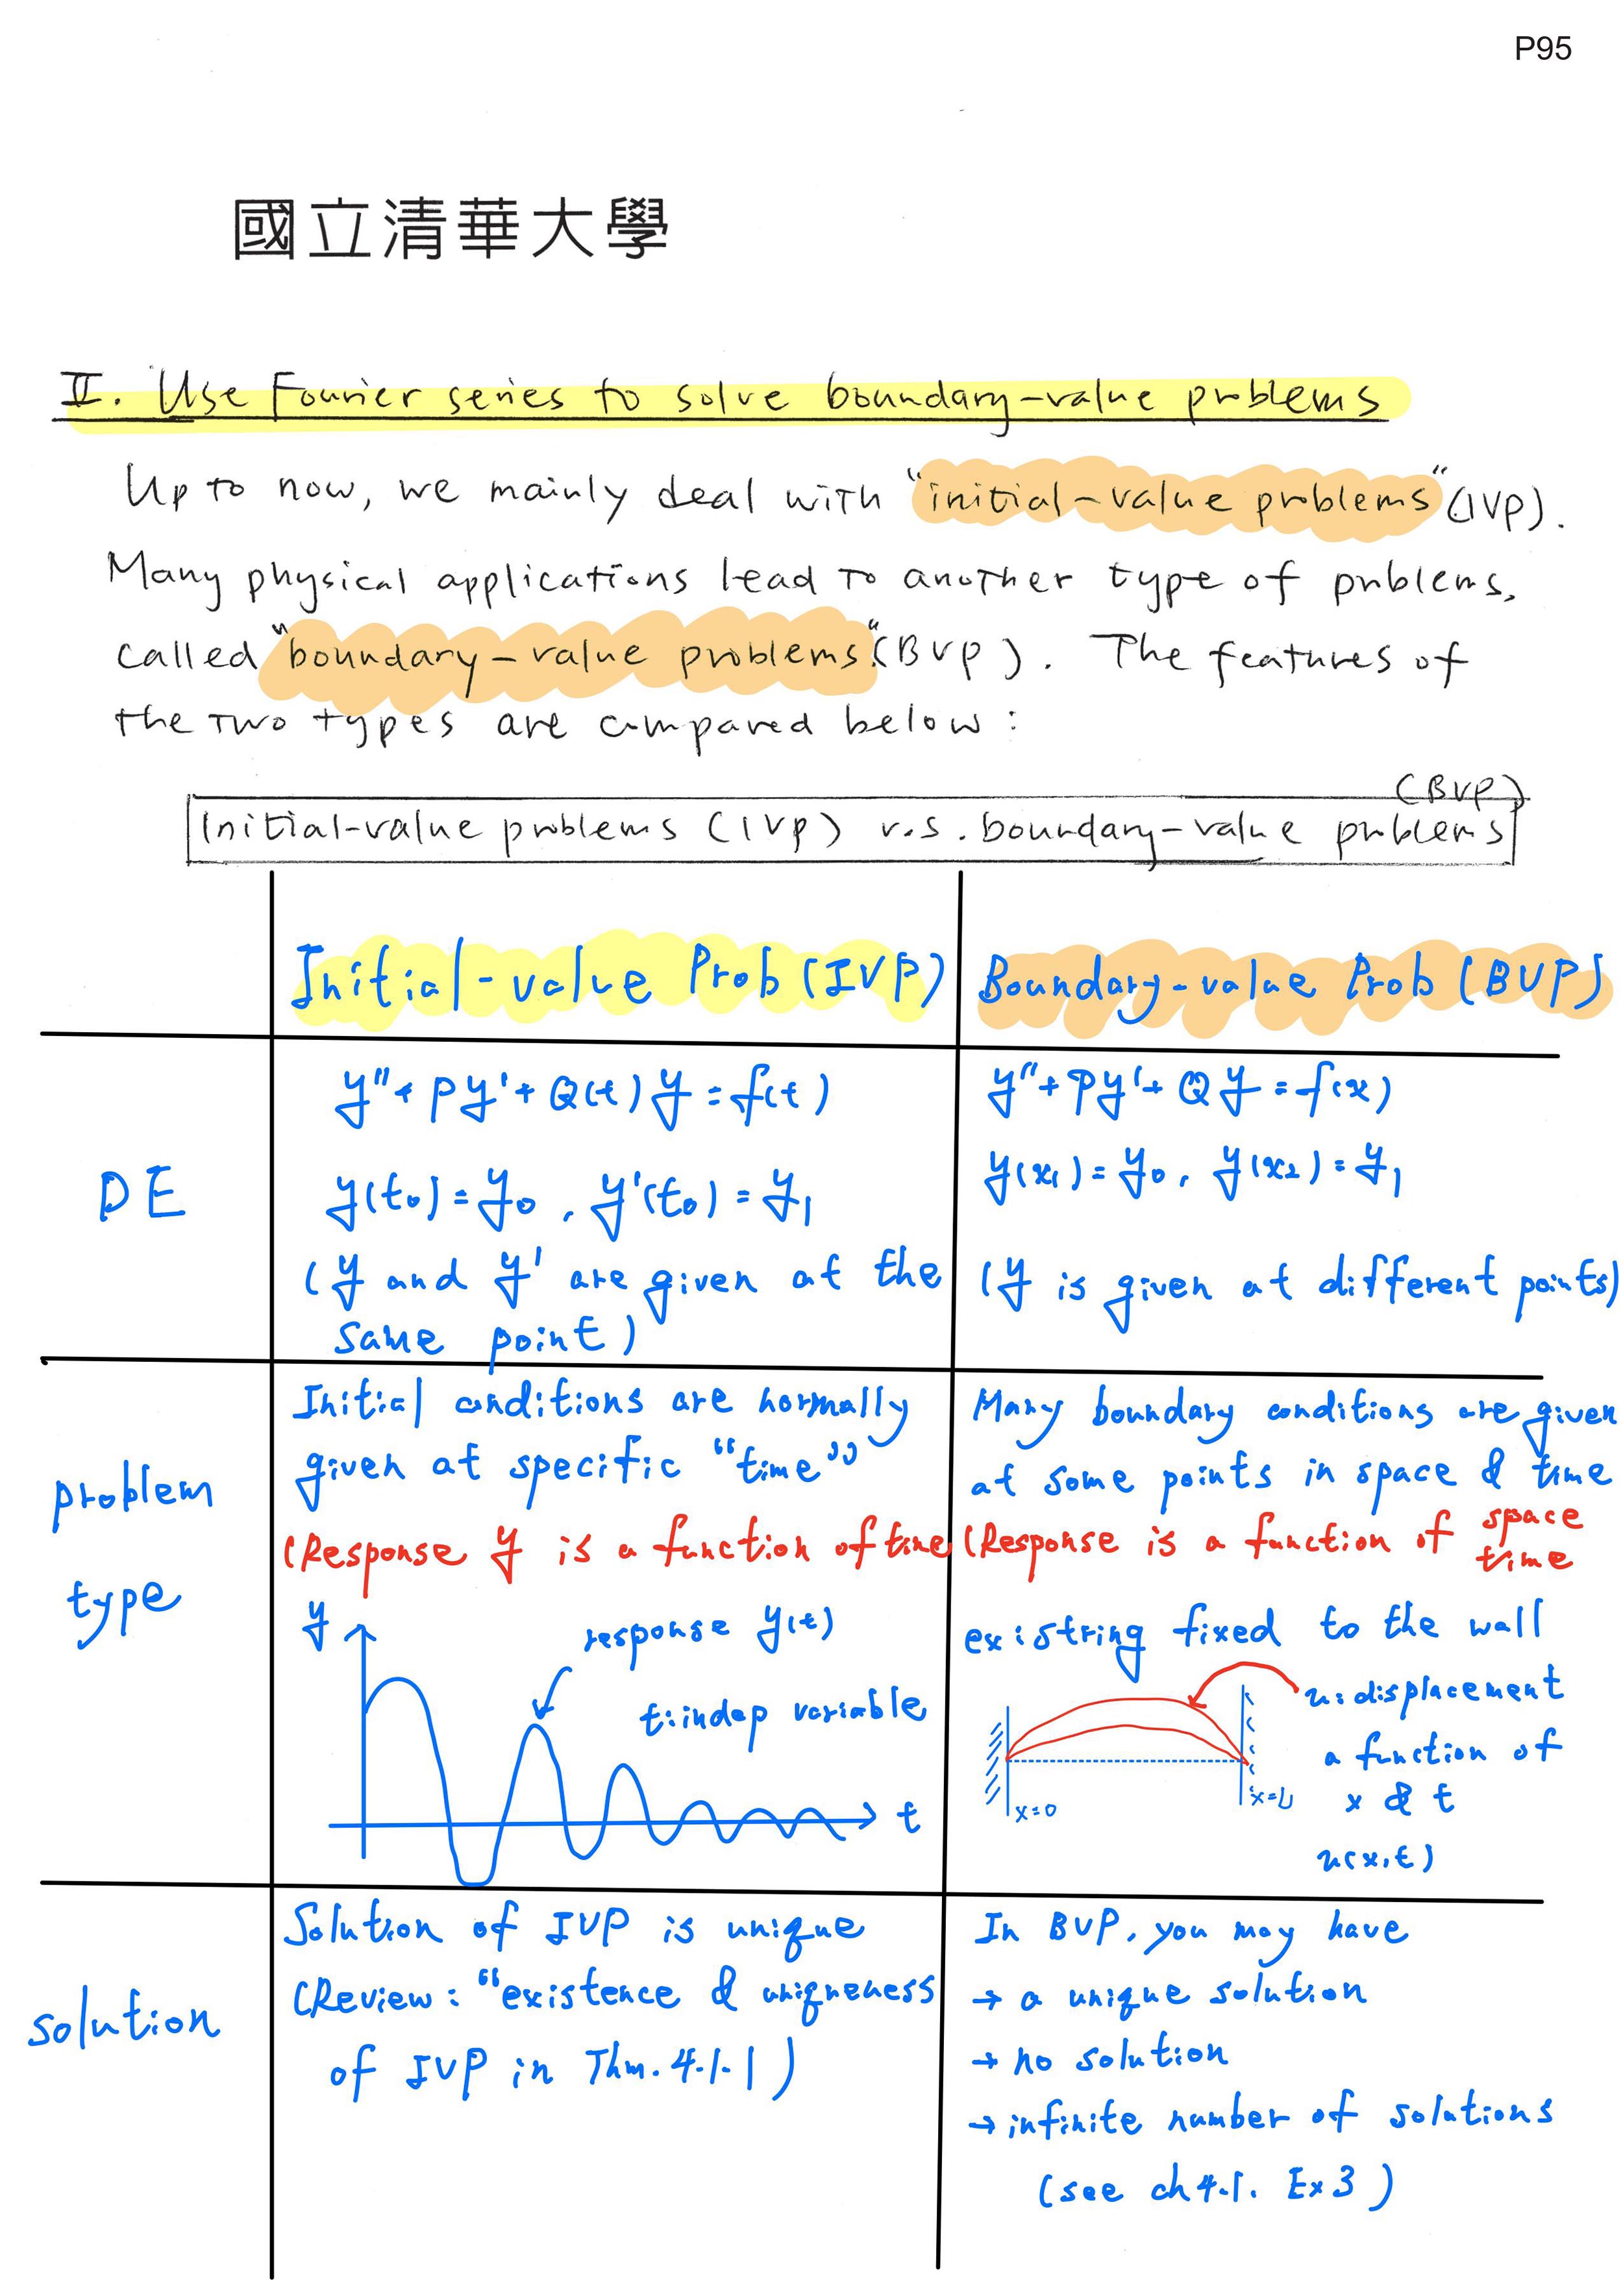 P95
國立清華大學
II. Use Fourier series to solve boundary-value problems
Up to now, we mainly deal with "initial-value problems" (IVP).
Many physical applications lead to another type of problems,
called "boundary-value problems" (BVP). The features of
the two types are compared below:
(BVP)
Initial-value problems (IVP) v.s. boundary-value problems
Initial-value Prob (IVP)
Boundary-value Prob (BVP)
DE
y"+Py'+Q(t)y=f(t)
y(t₀)=y₀, y'(t₀)=y₁
(y and y' are given at the
same point)
y"+Py'+Qy=f(x)
y(x₁)=y₀, y(x₂)=y₁
(y is given at different points)
problem
type
Initial conditions are normally
given at specific "time"
(Response y is a function of time
y
response y(t)
t:indep variable
t
Many boundary conditions are given
at some points in space & time
(Response is a function of space
time
ex: string fixed to the wall
u: displacement
a function of
x & t
u(x,t)
x=0
x=L
solution
Solution of IVP is unique
(Review: "existence & uniqueness
of IVP in Thm. 4.1.1)
In BVP, you may have
→ a unique solution
→ no solution
→ infinite number of solutions
(see ch 4.1. Ex 3)